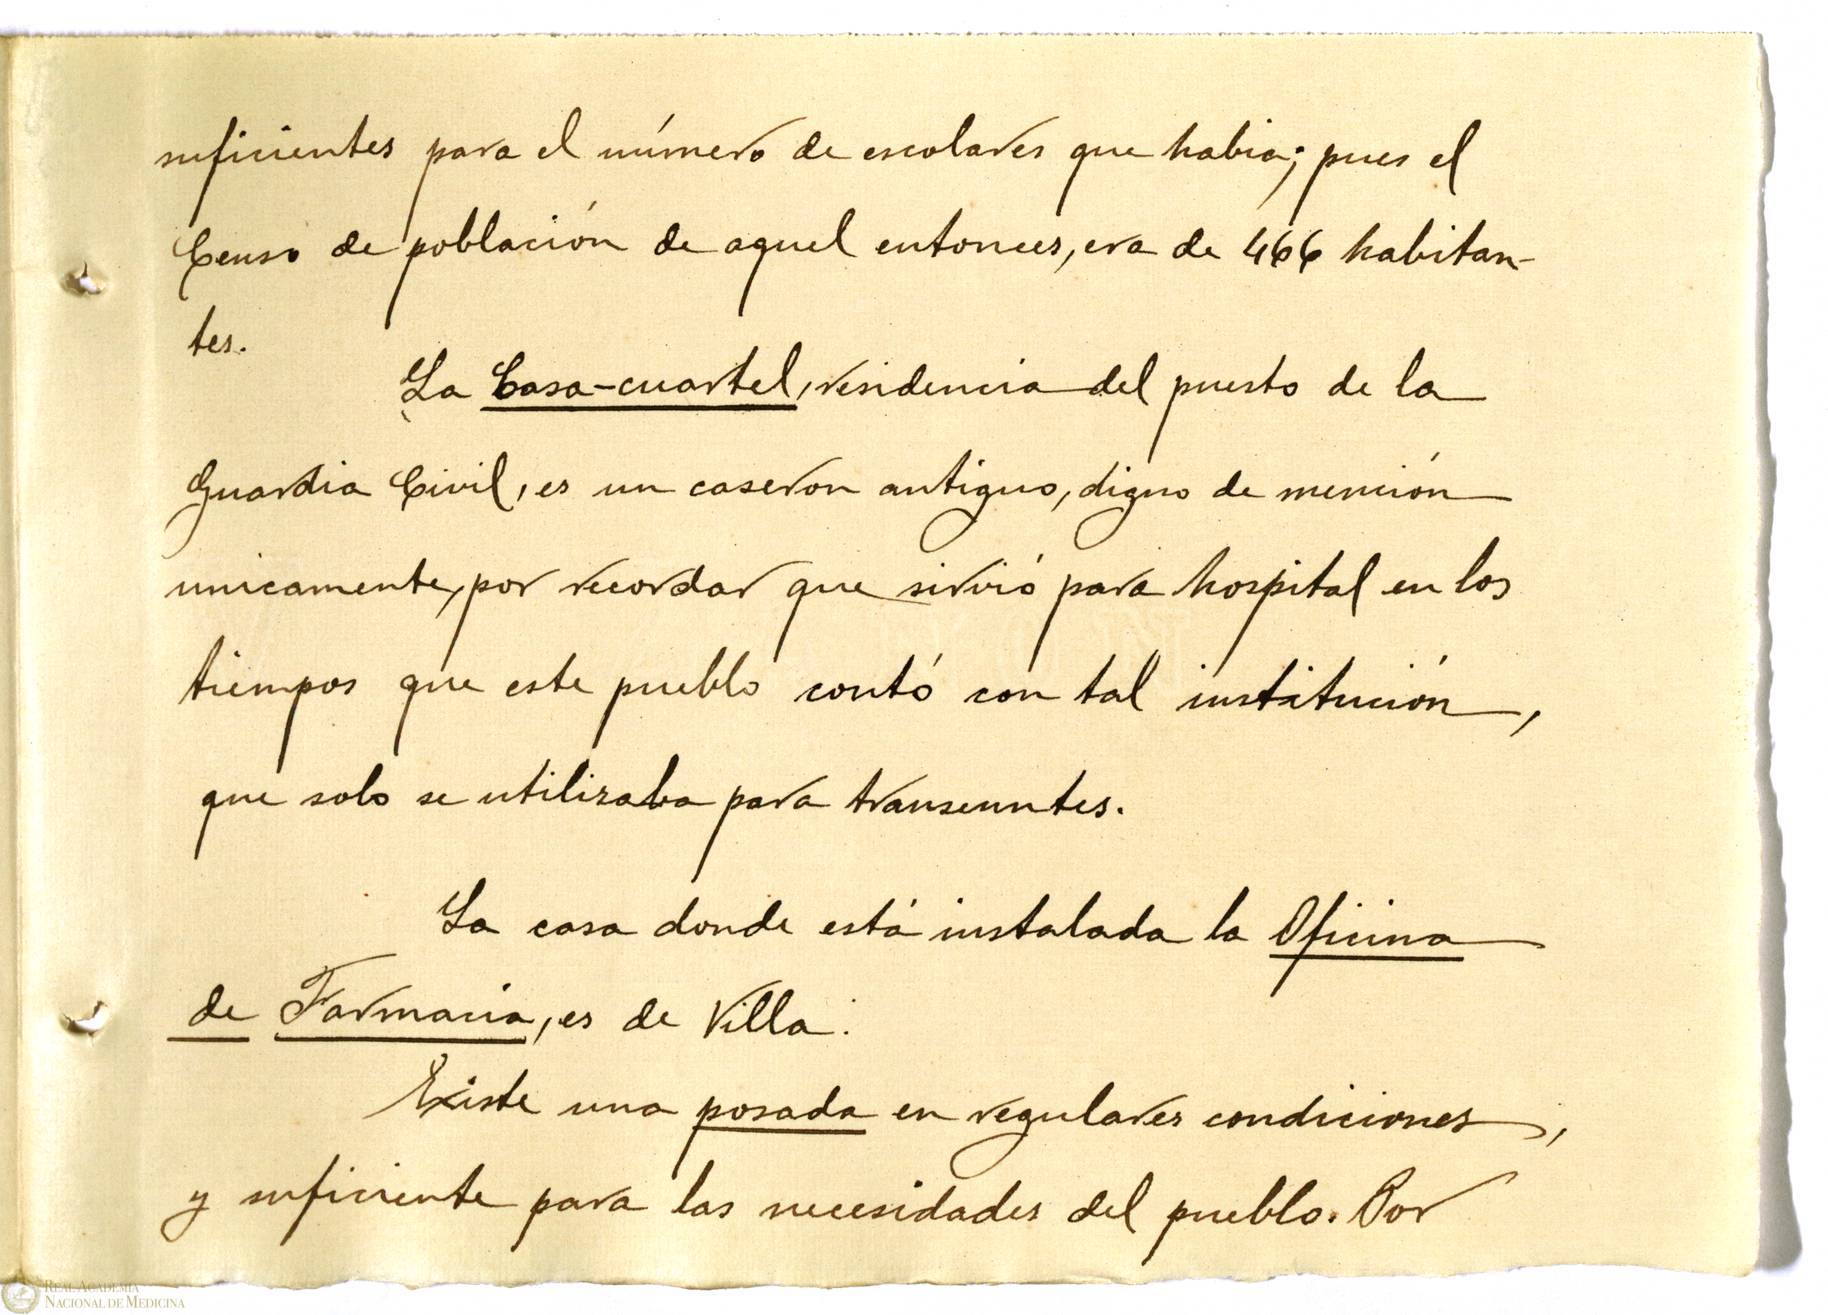 suficientes para el número de escolares que habia; pues el
Censo de población de aquel entonces, era de 466 habitan-
tes.
La Casa-cuartel, residencia del puesto de la
Guardia Civil, es un caseron antiguo, digno de mención
unicamente, por recordar que sirvió para hospital en los
tiempos que este pueblo contó con tal institución,
que solo se utilizaba para transeuntes.
La casa donde está instalada la Oficina
de Farmacia, es de Villa.
Existe una posada en regulares condiciones,
y suficiente para las necesidades del pueblo. Por
REAL ACADEMIA
NACIONAL DE MEDICINA